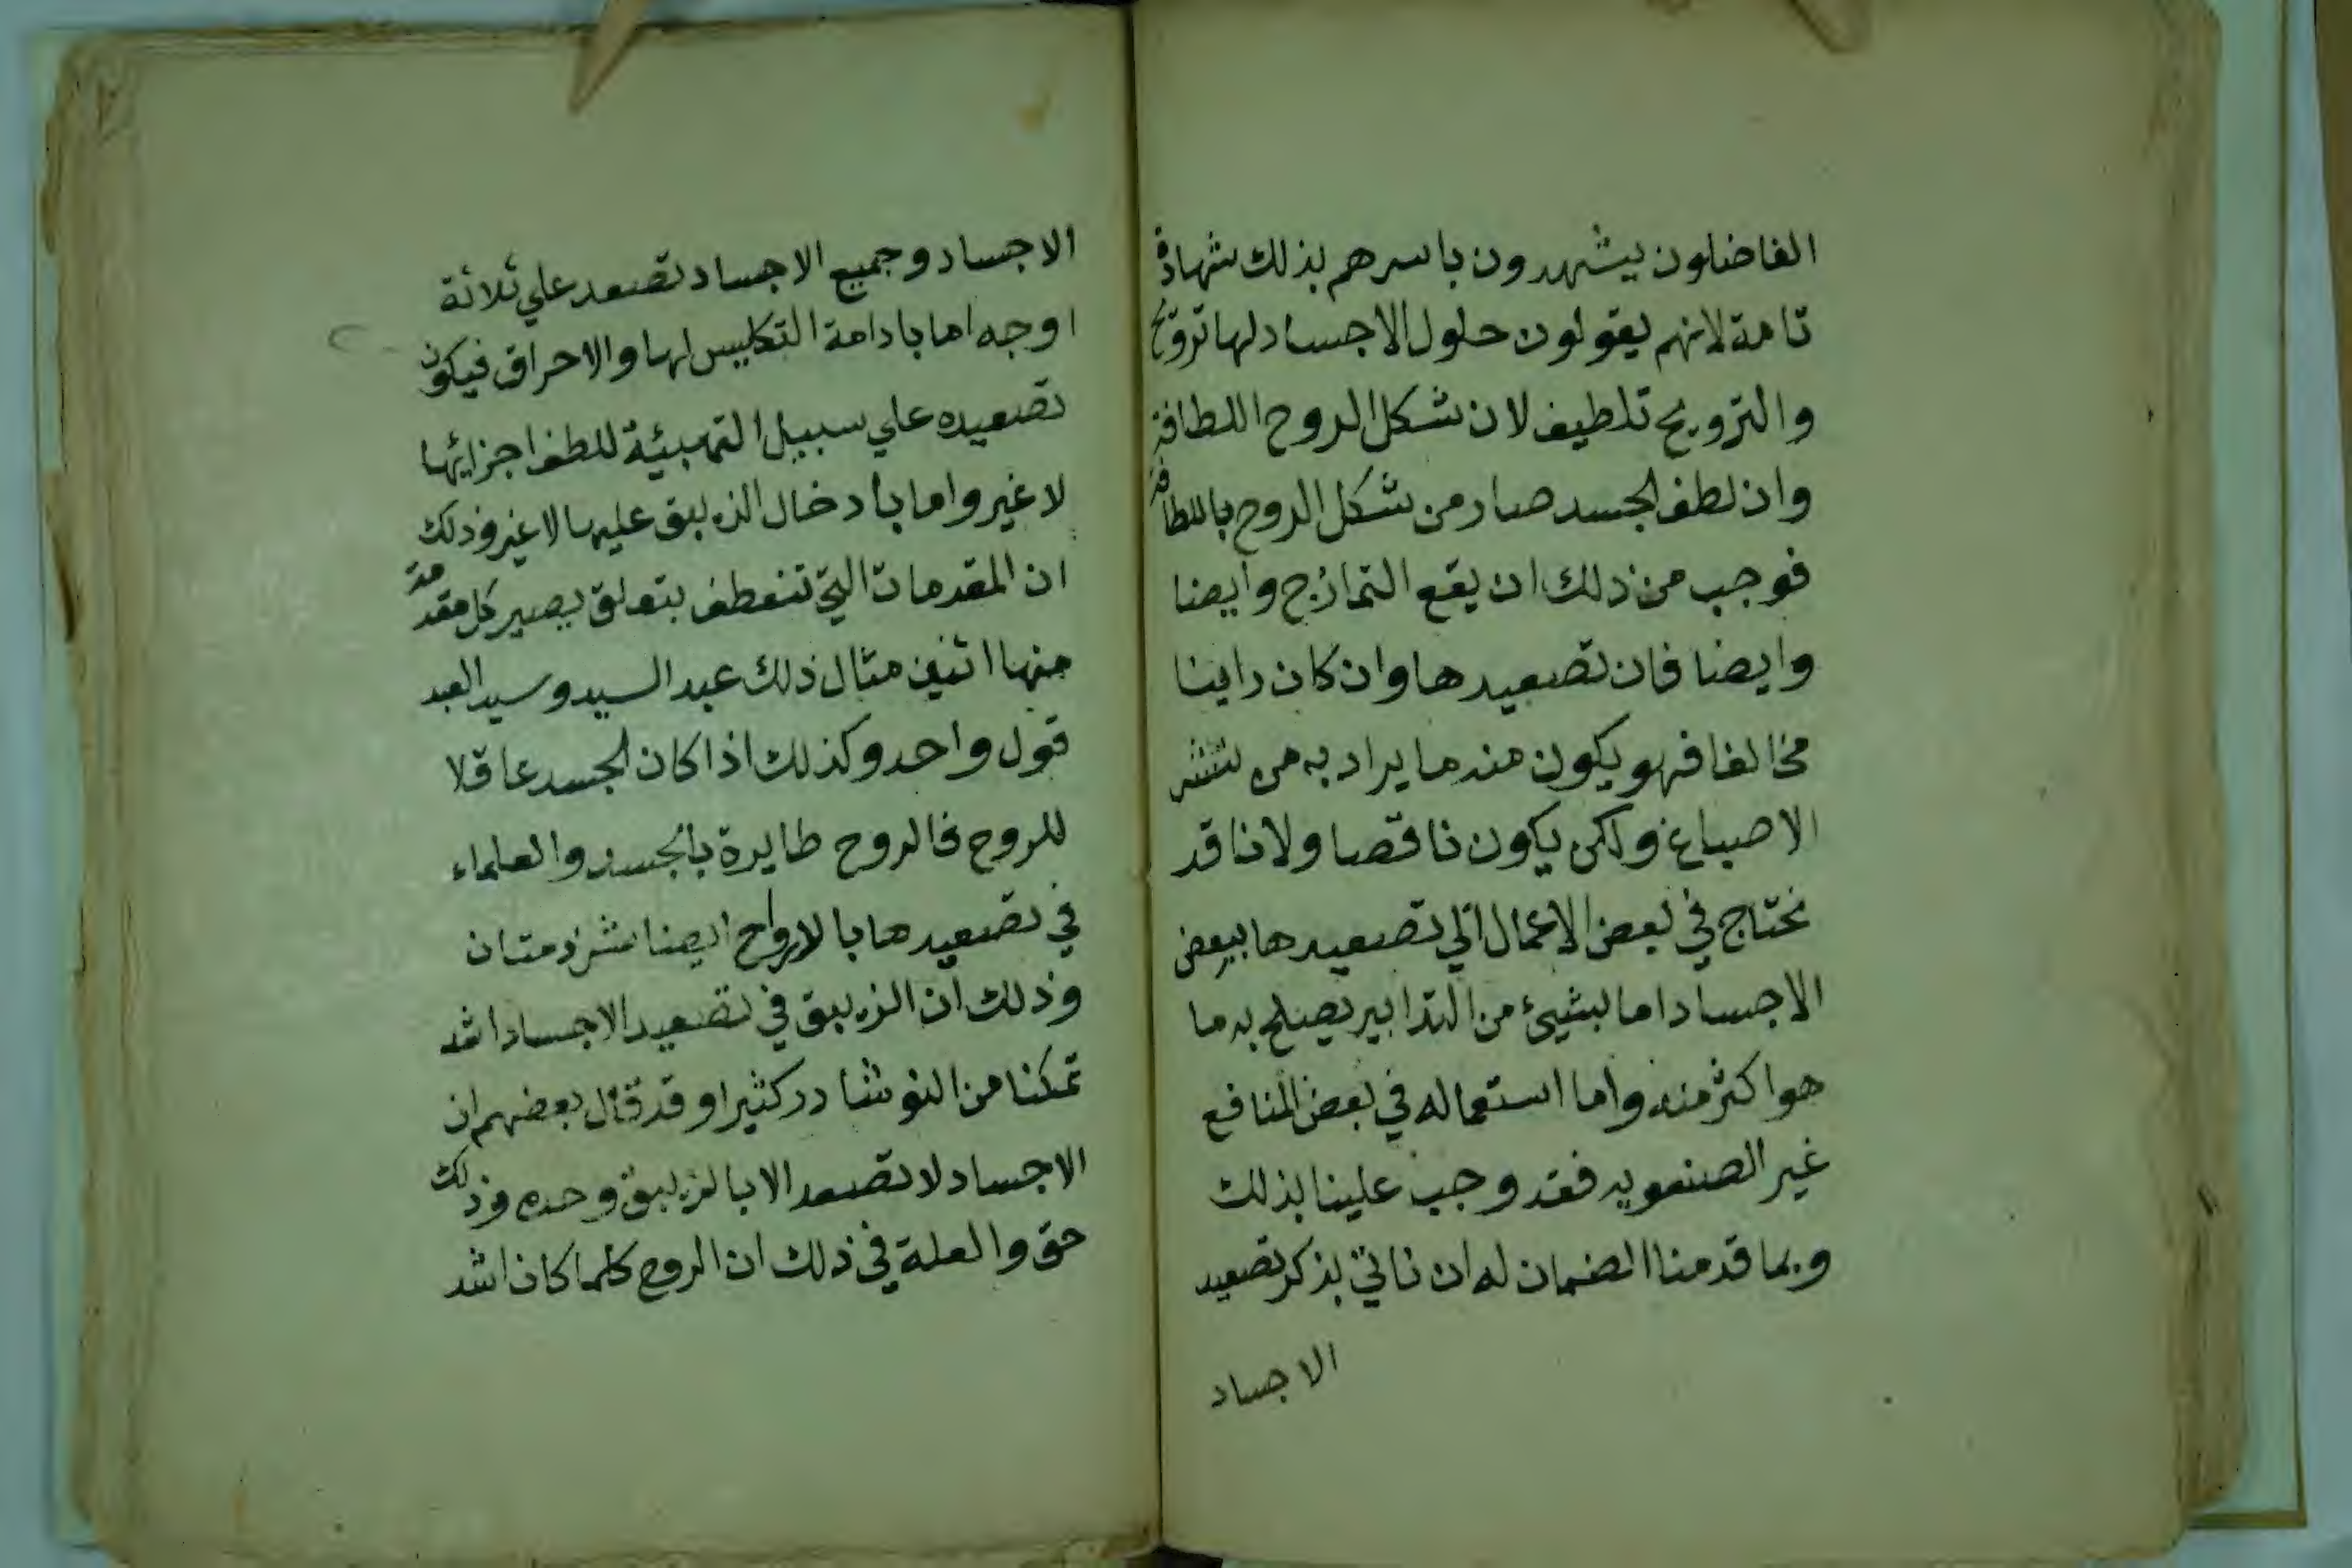 الفاضلون يشهدون باسرهم بذلك شهادة
تامة لانهم يقولون حلول الاجساد لها ترويح
والترويح تلطيف لان شكل الروح اللطافة
وان لطف الجسد صار من شكل الروح باللطافة
فوجب من ذلك ان يقع التمازج وايضا
وايضا فان تصعيدها وان كان راينا
مخالفا فهو يكون منه ما يراد به من
الاصباغ ولكن يكون ناقصا ولانا قد
نحتاج في بعض الاعمال الي تصعيدها ببعض
الاجساد اما بشيئ من التدابير يصلح به ما
هو اكثر منه واما استعماله في بعض المنافع
غير الصنعويه فقد وجب علينا بذلك
وبما قدمنا الضمان له ان ناتي بذكر تصعيد
الاجساد
الاجساد وجميع الاجساد تصعد علي ثلاثة
اوجه اما بادامة التكليس لها والاحراق فيكون
تصعيده علي سبيل التهيئة للطف اجزائها
لا غير واما بادخال الزيبق عليها لا غير وذلك
ان المقدمات التي تنعطف بتعلق يصير كل مقدمة
منها اثنين مثال ذلك عبد السيد وسيد العبد
قول واحد وكذلك اذا كان الجسد عاقلا
للروح فالروح طايرة بالجسد والعلماء
في تصعيدها بالارواح ايضا شرذمتان
وذلك ان الزيبق في تصعيد الاجساد اشد
تمكنا من النوشادر كثيرا وقد قال بعضهم ان
الاجساد لا تصعد الا بالزيبق وحده وذلك
حق والعلة في ذلك ان الروح كلما كان اشد